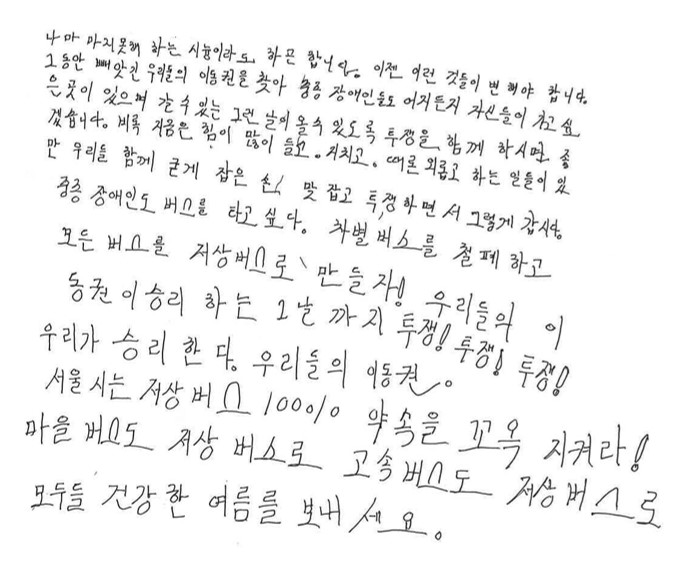 나마 마지못해 하는 시늉이라도 하곤 합니다. 이젠 이런 것들이 변해야 합니다.
그동안 빼앗긴 우리들의 이동권을 찾아 중증 장애인들도 어거든지 자신들이 가고 싶
은 곳이 있으며 갈 수 있는 그런 날이 올 수 있도록 투쟁을 함께 하시면 좋
겠습니다. 비록 지금은 힘이 많이 들고. 지치고. 때론 외롭고 하는 일들이 있
만 우리들 함께 굳게 잡은 손 맞 잡고 투쟁하면서 그렇게 갑시다.
중증 장애인도 버스를 타고 싶다. 차별버스를 철폐하고
모든 버스를 저상버스로 만들자! 우리들의 이
동권이 승리 하는 그날 까지 투쟁! 투쟁! 투쟁!
우리가 승리 한다. 우리들의 이동권.
서울시는 저상버스 100% 약속을 꼬옥 지켜라!
마을 버스도 저상 버스로 고속버스도 저상버스로
모두들 건강한 여름를 보내세요.